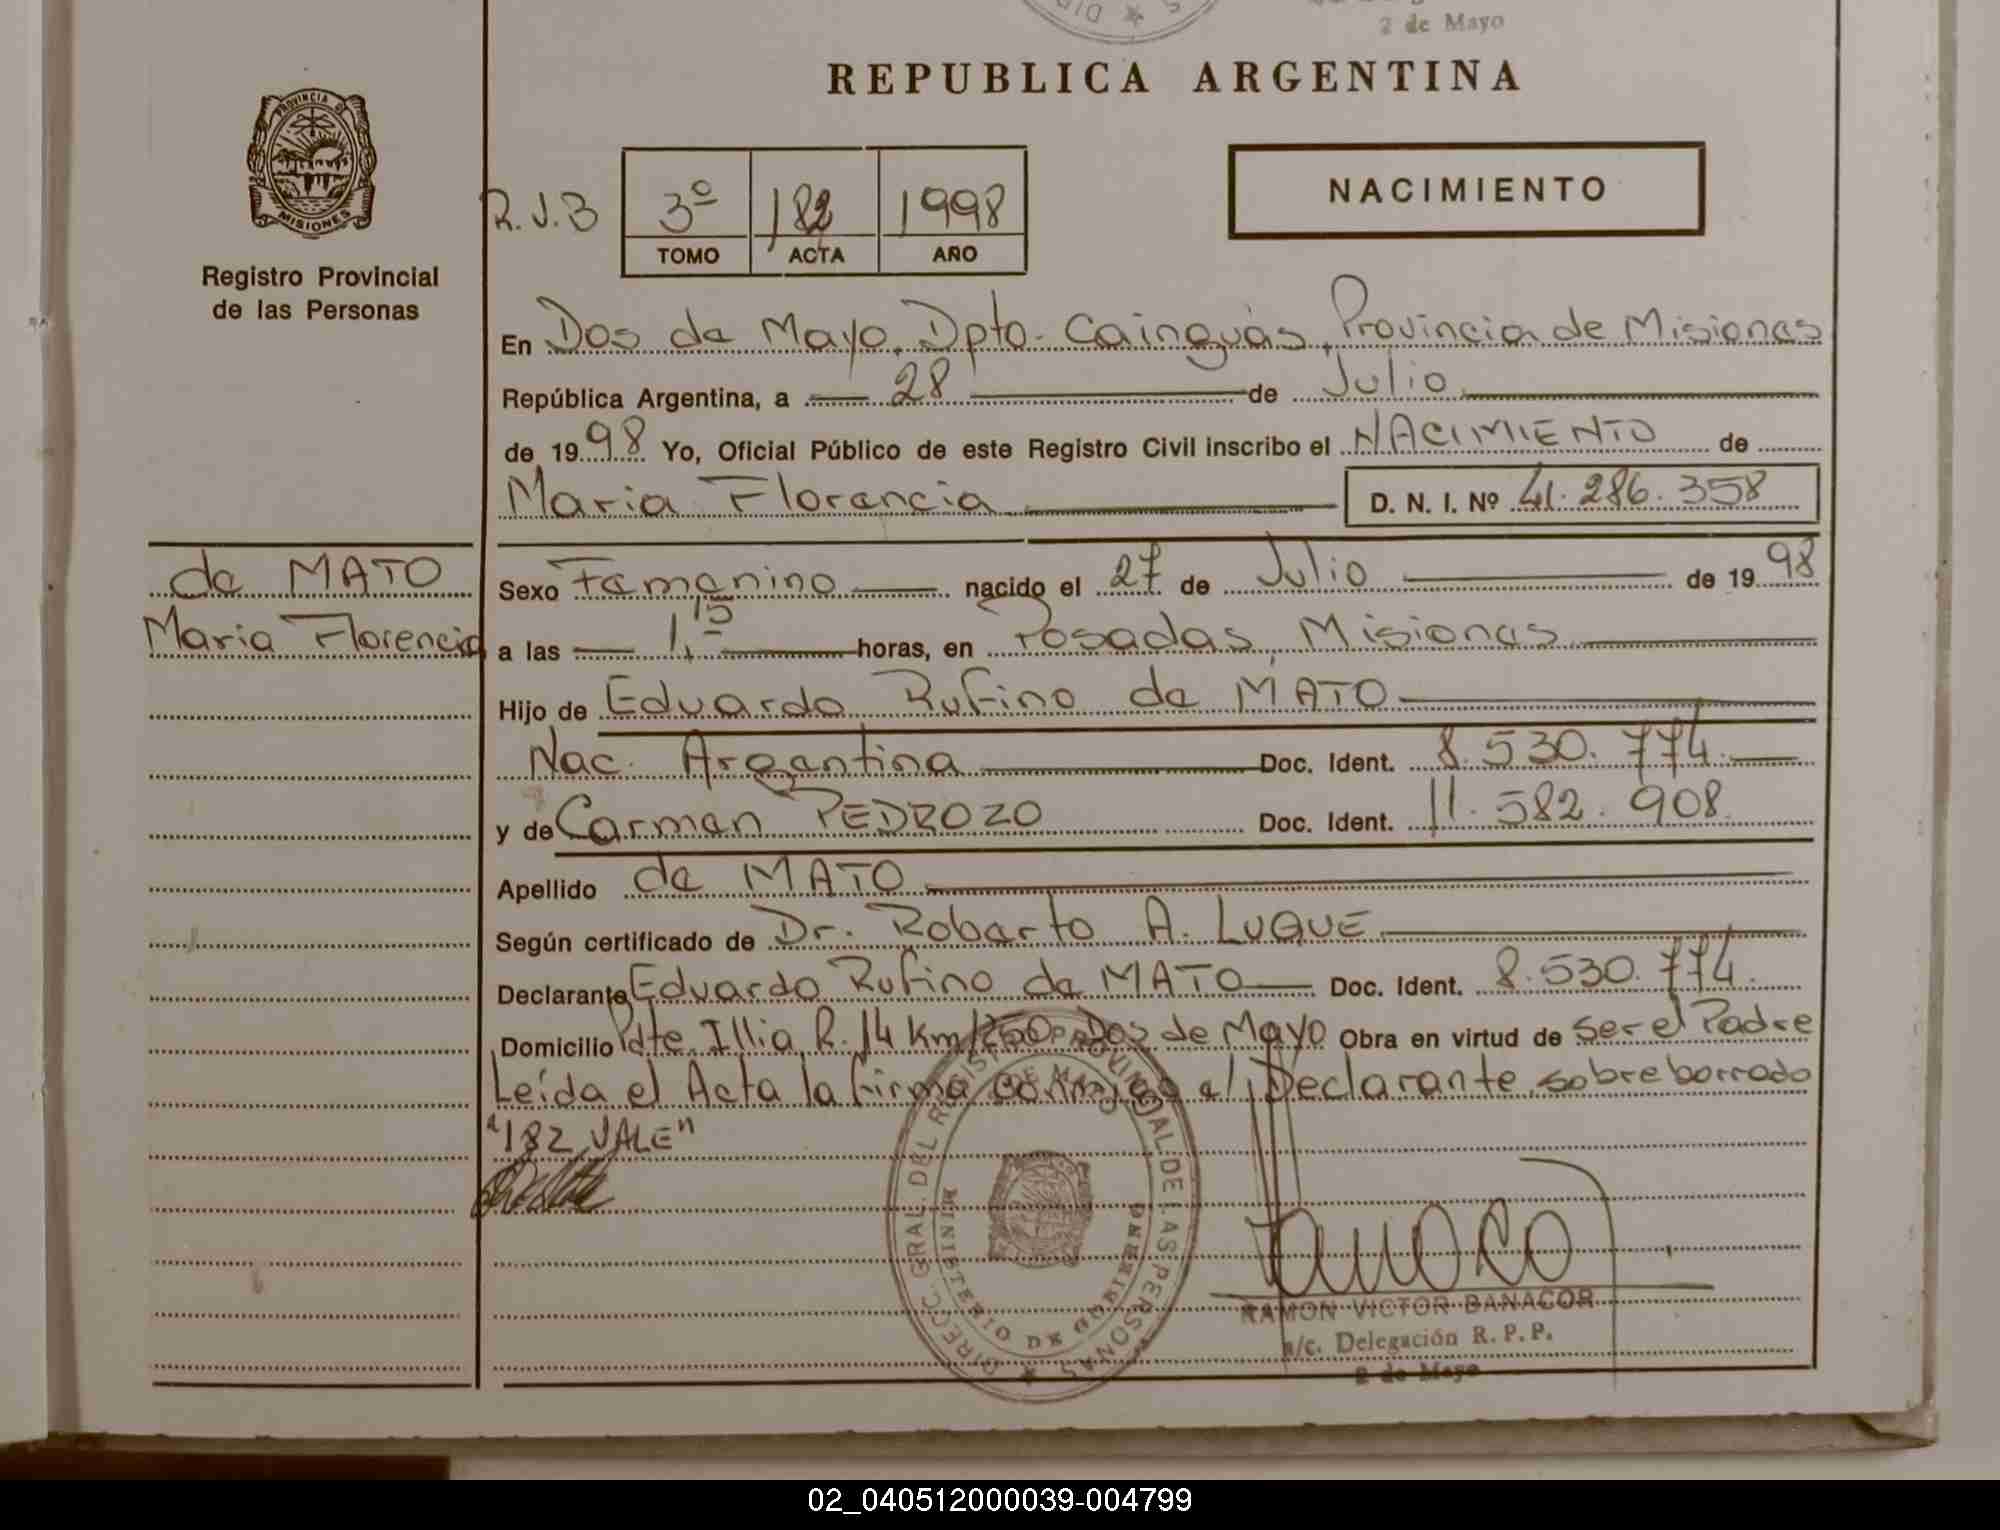 2 de Mayo
REPUBLICA ARGENTINA
PROVINCIA D
MISIONES
Registro Provincial
de las Personas
R.J.B
3º 182 1998
TOMO ACTA AÑO
NACIMIENTO
En Dos de Mayo, Dpto. Cainguás, Provincia de Misiones
República Argentina, a 28 de Julio
de 1998 Yo, Oficial Público de este Registro Civil inscribo el NACIMIENTO de
Maria Florencia D. N. I. Nº 41.286.358
de MATO
Maria Florencia
Sexo Femenino nacido el 27 de Julio de 1998
a las 1,15 horas, en Posadas, Misiones
Hijo de Eduardo Rufino de MATO
Nac. Argentina Doc. Ident. 8.530.774
y de Carmen PEDROZO Doc. Ident. 11.582.908
Apellido de MATO
Según certificado de Dr. Roberto A. LUQUE
Declarante Eduardo Rufino de MATO Doc. Ident. 8.530.774.
Domicilio Pdte. Illia R. 14 Km 1250 Dos de Mayo Obra en virtud de ser el Padre
Leída el Acta la firma conmigo el Declarante, sobreborrado
"182 VALE"
DIRECC. GRAL. DEL REGISTRO PROVINCIAL DE LAS PERSONAS
MINISTERIO DE GOBIERNO
RAMON VICTOR BANACOR
a/c. Delegación R. P. P.
2 de Mayo
02_040512000039-004799